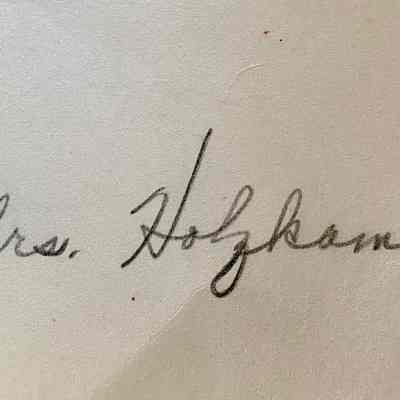 Mrs. Holzkam